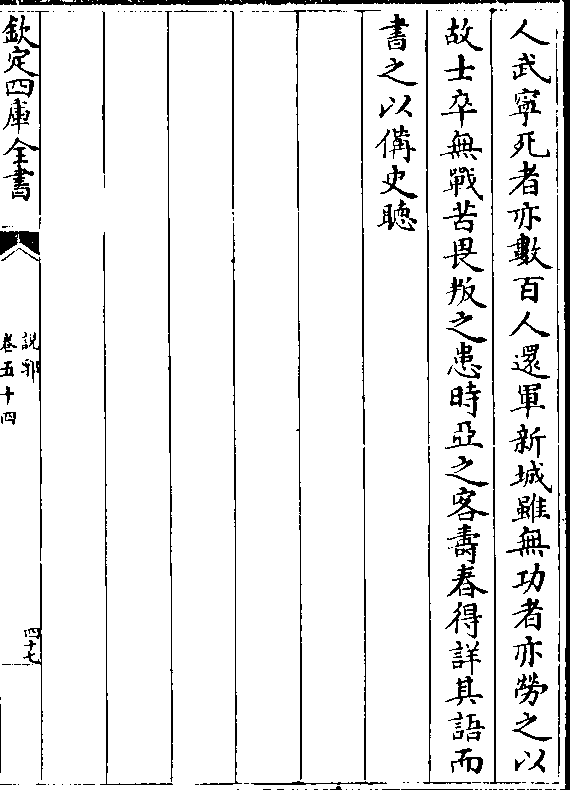 人武寧死者亦數百人還軍新城雖無功者亦勞之以
故士卒無戰苦畏叛之患時亞之客壽春得詳其語而
書之以備史聽
欽定四庫全書
說郛
卷五十四
四十七